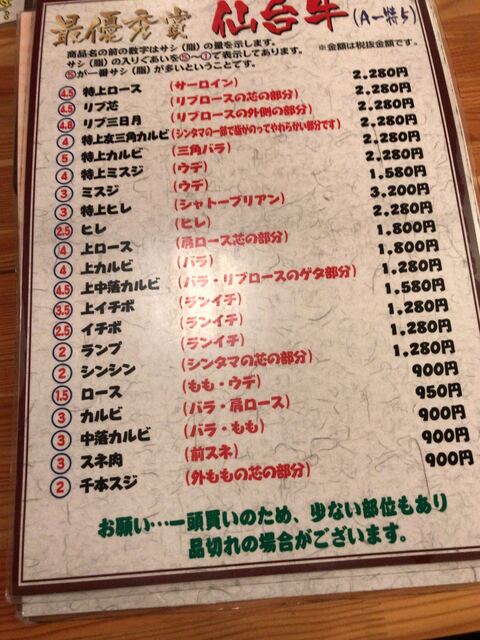 最優秀賞 仙台牛 (A-特5)
商品名の前の数字はサシ(脂)の量を示します。
サシ(脂)の入りぐあいを⑤~①で表示してあります。
⑤が一番サシ(脂)が多いということです。
※金額は税抜金額です。
4.5 特上ロース (サーロイン) 2,280円
4.5 リブ芯 (リブロースの芯の部分) 2,280円
4.8 リブ三日月 (リブロースの外側の部分) 2,280円
4 特上友三角カルビ (シンタマの一部で脂がのってやわらかい部分です) 2,280円
5 特上カルビ (三角バラ) 2,280円
4 特上ミスジ (ウデ) 2,280円
3 ミスジ (ウデ) 1,580円
3 特上ヒレ (シャトーブリアン) 3,200円
2.5 ヒレ (ヒレ) 2,280円
4 上ロース (肩ロース芯の部分) 1,800円
4 上カルビ (バラ) 1,800円
4.5 上中落カルビ (バラ・リブロースのゲタ部分) 1,280円
3.5 上イチボ (ランイチ) 1,580円
2.5 イチボ (ランイチ) 1,280円
2 ランプ (ランイチ) 1,280円
2 シンシン (シンタマの芯の部分) 1,280円
1.5 ロース (もも・ウデ) 900円
3 カルビ (バラ・肩ロース) 950円
3 中落カルビ (バラ・もも) 900円
3 スネ肉 (前スネ) 900円
2 千本スジ (外ももの芯の部分) 900円
お願い…一頭買いのため、少ない部位もあり
品切れの場合がございます。